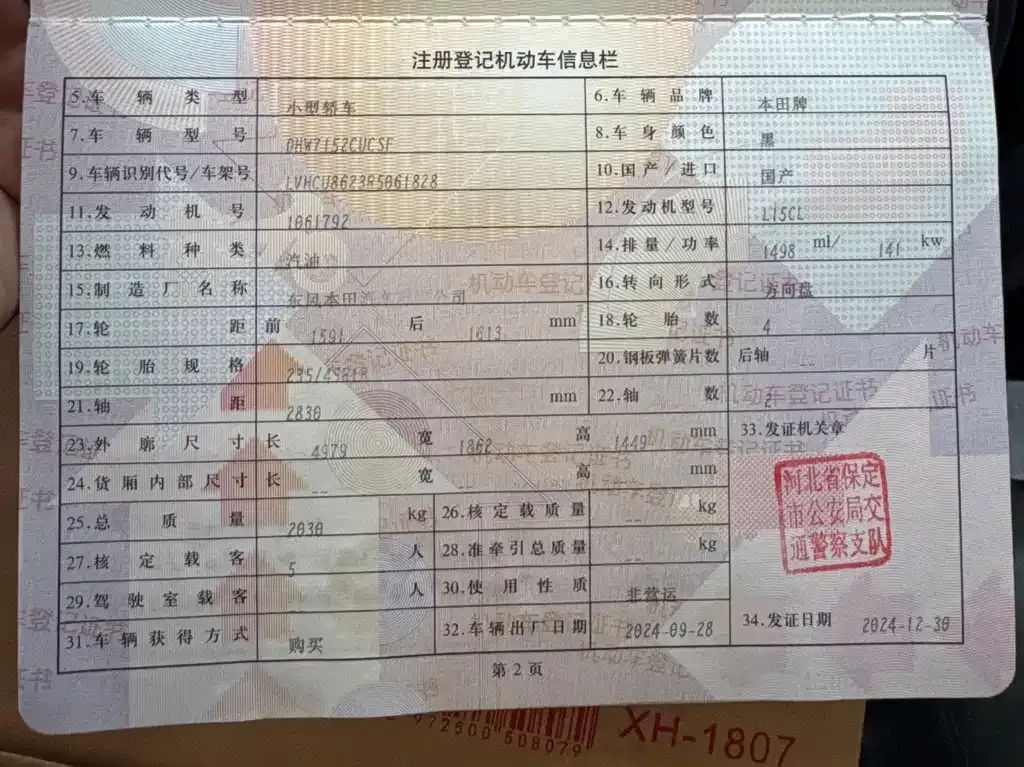 注册登记机动车信息栏
5.车辆类型 小型轿车 6.车辆品牌 本田牌
7.车辆型号 DHW7152CUCSF 8.车身颜色 黑
9.车辆识别代号/车架号 LVHCU8623R5061828 10.国产/进口 国产
11.发动机号 1061792 12.发动机型号 L15CL
13.燃料种类 汽油 14.排量/功率 1498 ml/ 141 kw
15.制造厂名称 东风本田汽车有限公司 16.转向形式 方向盘
17.轮距 前 1591 后 1613 mm 18.轮胎数 4
19.轮胎规格 235/45R18 20.钢板弹簧片数 后轴 -- 片
21.轴距 2830 mm 22.轴数 2
23.外廓尺寸 长 4979 宽 1862 高 1449 mm 33.发证机关章
24.货厢内部尺寸 长 -- 宽 -- 高 -- mm
河北省保定
市公安局交
通警察支队
25.总质量 2030 kg 26.核定载质量 -- kg
27.核定载客 5 人 28.准牵引总质量 -- kg
29.驾驶室载客 -- 人 30.使用性质 非营运
31.车辆获得方式 购买 32.车辆出厂日期 2024-09-28 34.发证日期 2024-12-30
第2页
972500 508079 XH-1807